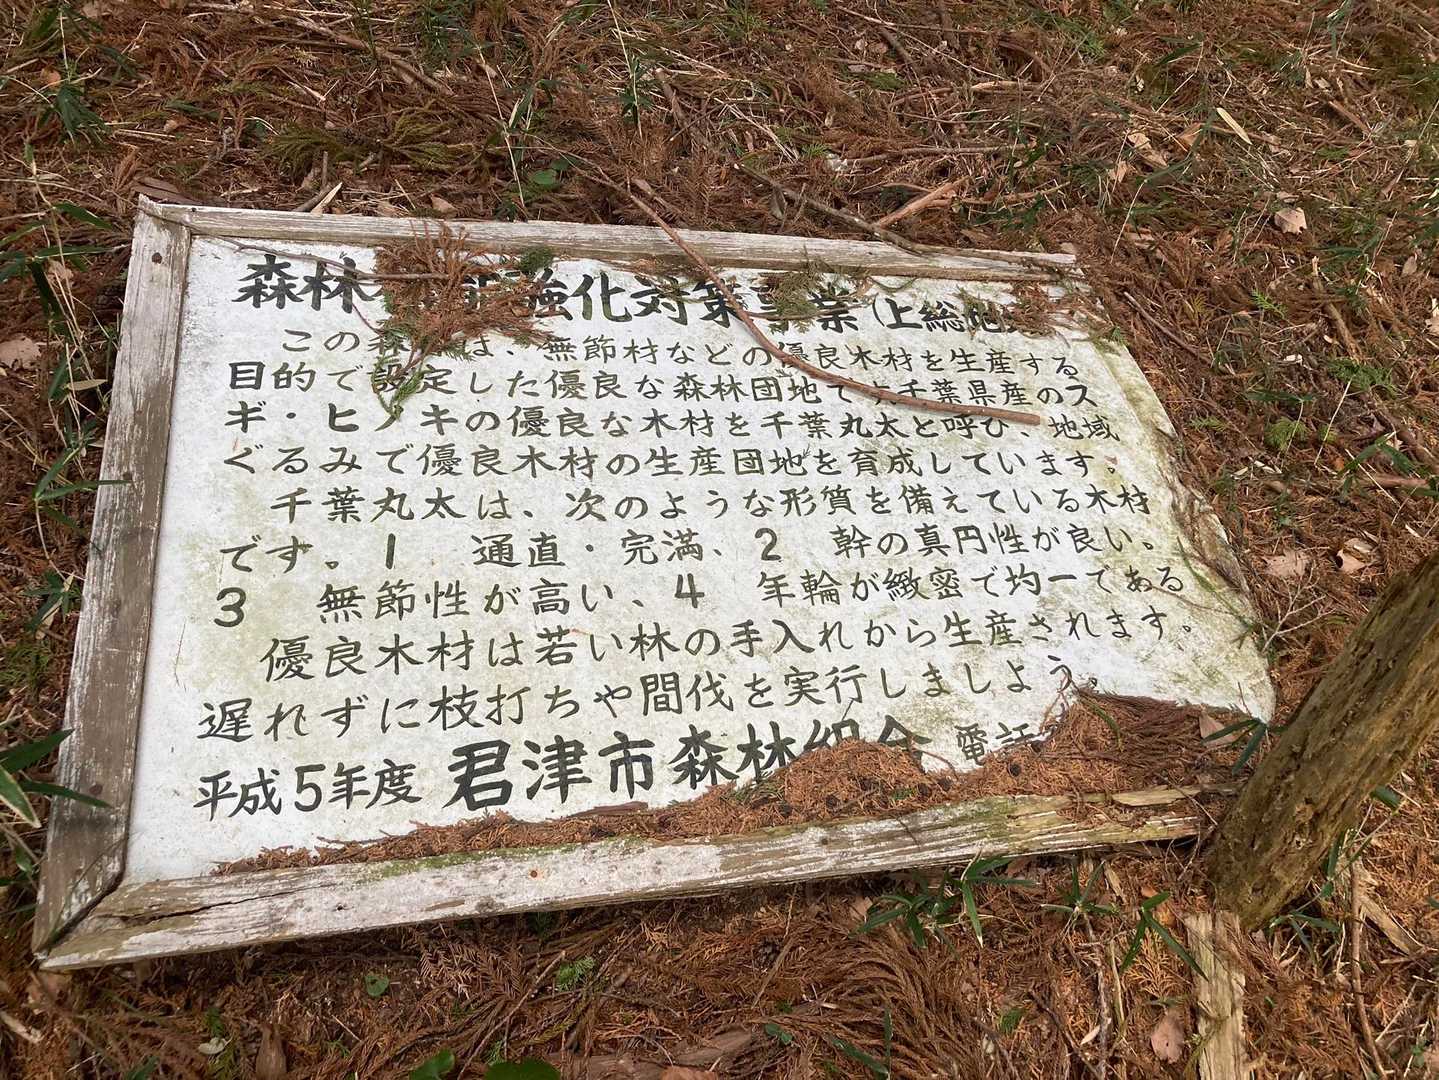 森林 強化対策事業(上総地
この森林は、無節材などの優良木材を生産する
目的で設定した優良な森林団地です千葉県産のス
ギ・ヒノキの優良な木材を千葉丸太と呼び、地域
ぐるみで優良木材の生産団地を育成しています。
千葉丸太は、次のような形質を備えている木材
です。1 通直・完満、2 幹の真円性が良い。
3 無節性が高い、4 年輪が緻密で均一である
優良木材は若い林の手入れから生産されます。
遅れずに枝打ちや間伐を実行しましよう。
平成5年度 君津市森林組合 電話